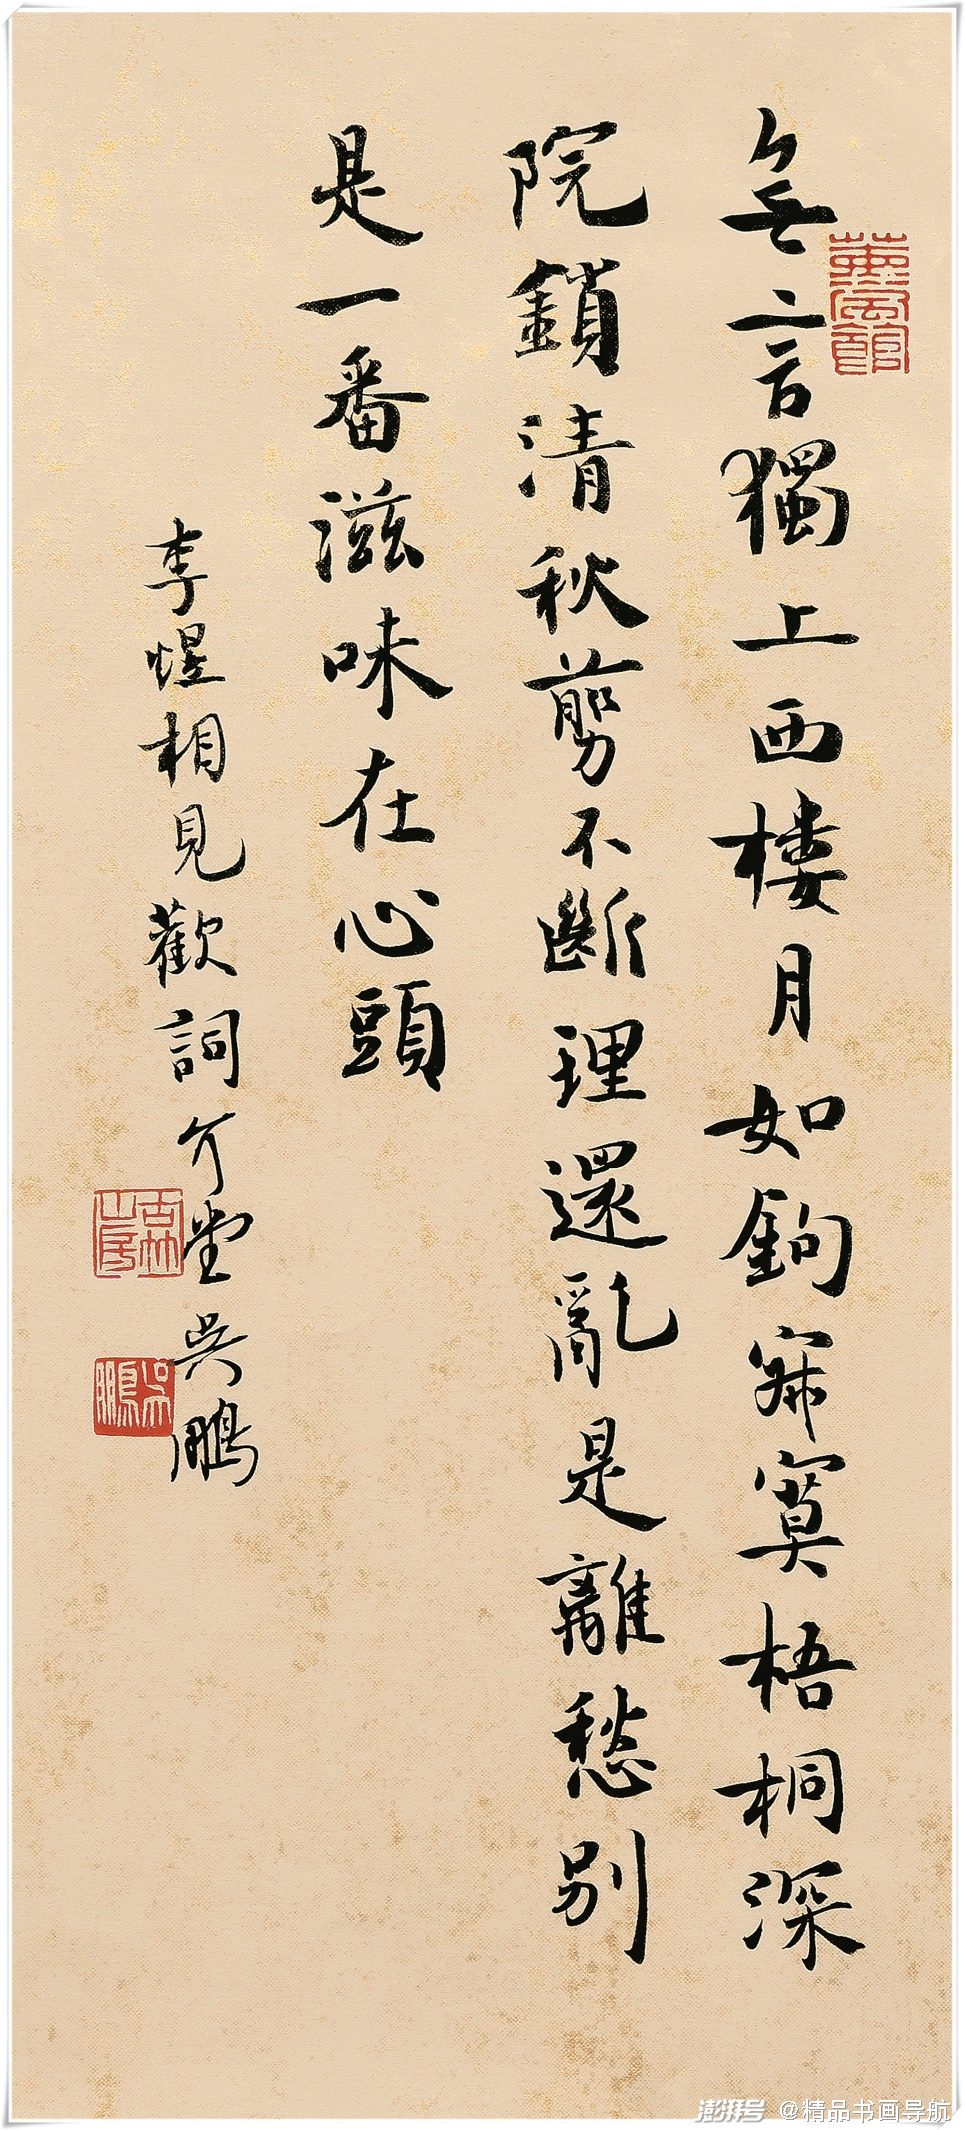 無言獨上西樓月如鉤寂寞梧桐深
院鎖清秋剪不斷理還亂是離愁別
是一番滋味在心頭
李煜相見歡詞介堂吳鵬
古林山房
吳鵬
澎湃号 @精品书画导航